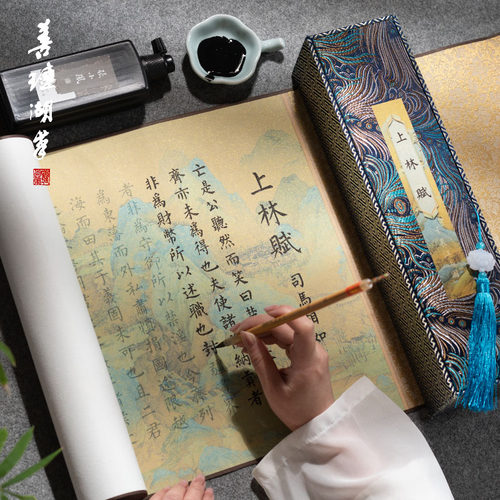 善璉湖筆
上林賦
上林賦
司馬相如
亡是公聽然而笑曰楚
齊亦未為得也夫使諸納貢者
非為財幣所以述職也封界
者非為守御所以禁淫也今列
為東藩而外私肅捐國踰限越
海而田其于義固未可也且二君